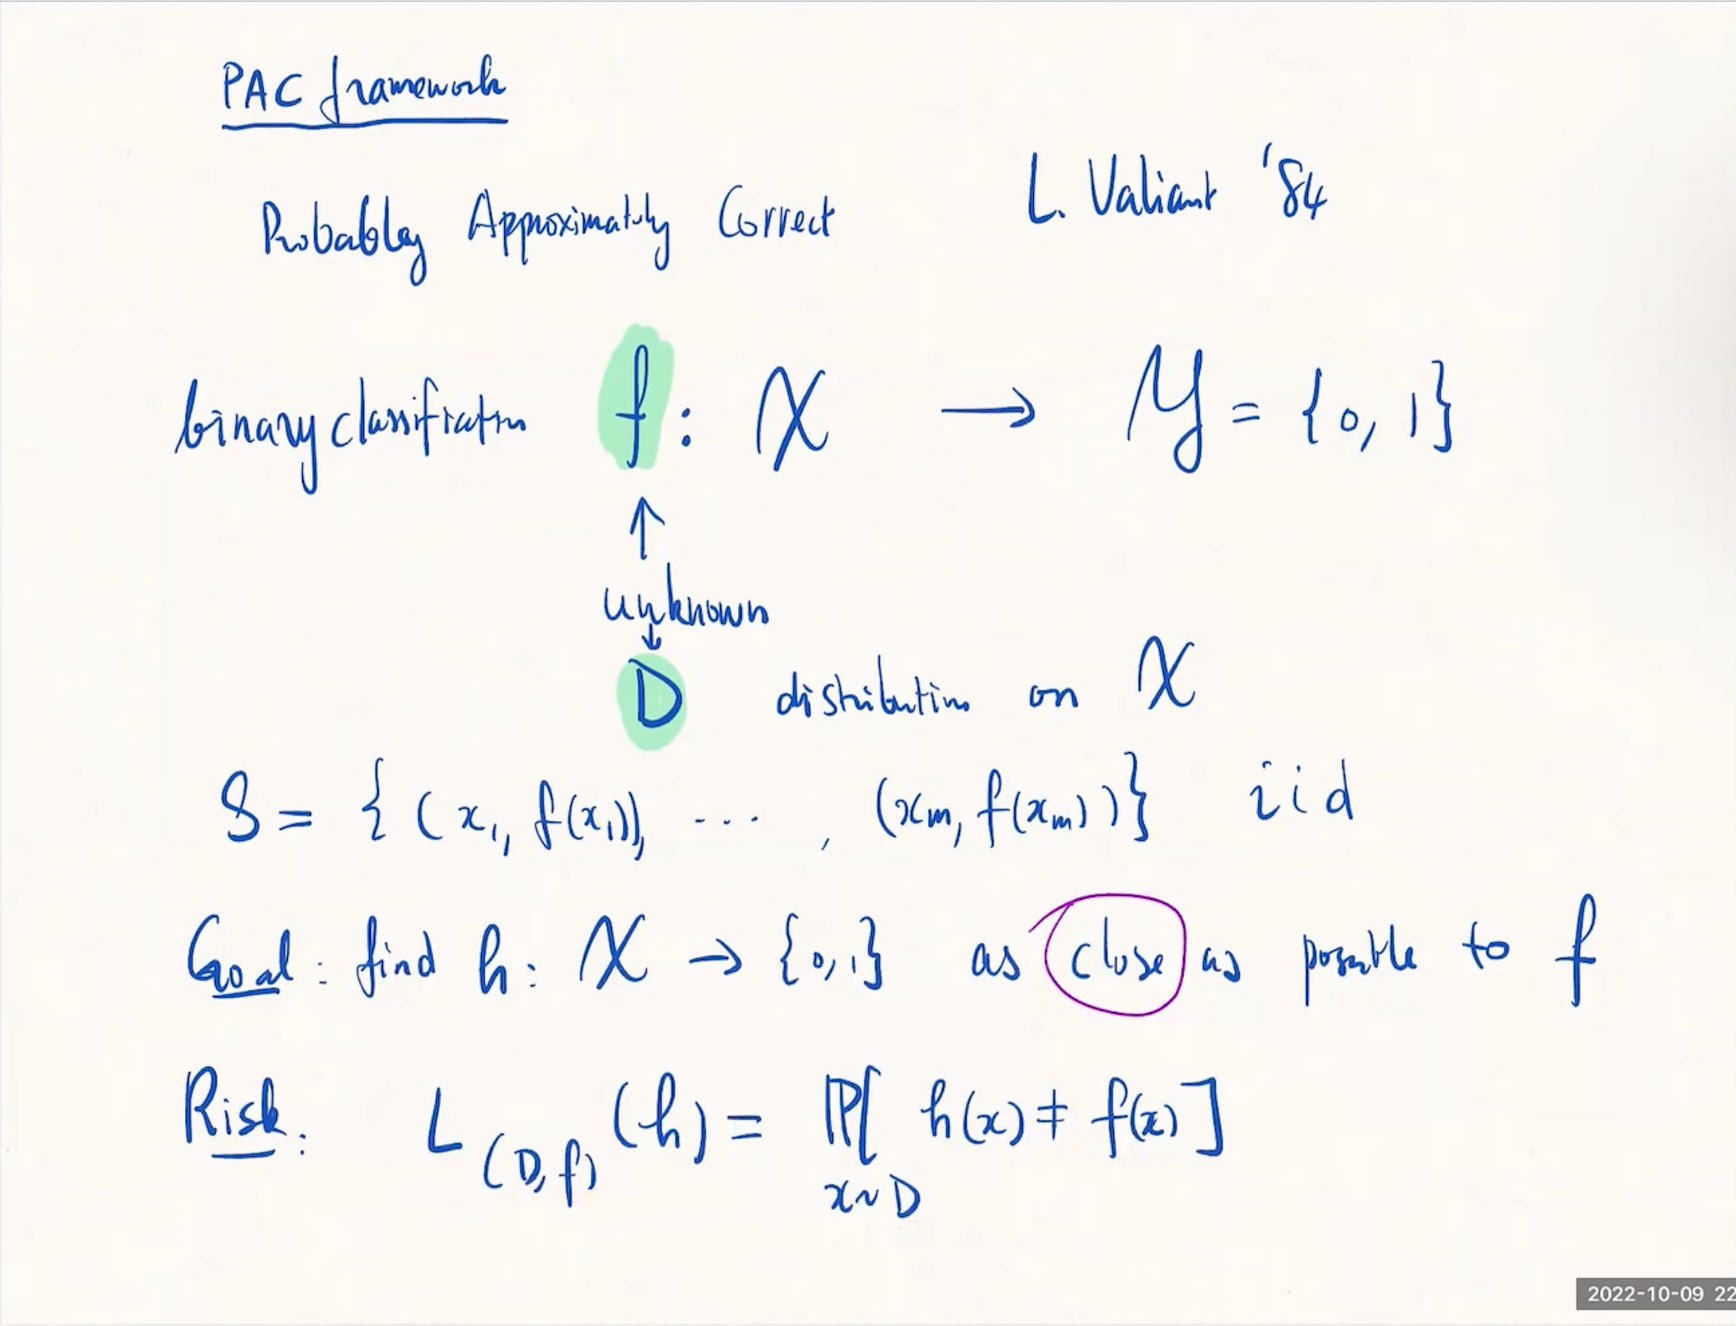 PAC framework
Probably Approximately Correct L. Valiant '84
binary classification f : X → Y = {0, 1}
↑
unknown
↓
D distribution on X
S = { (x₁, f(x₁)), ... , (xₘ, f(xₘ)) } iid
Goal : find h : X → {0, 1} as close as possible to f
Risk : L (D, f) (h) = ℙ[ h(x) ≠ f(x) ]
x ~ D
2022-10-09 22